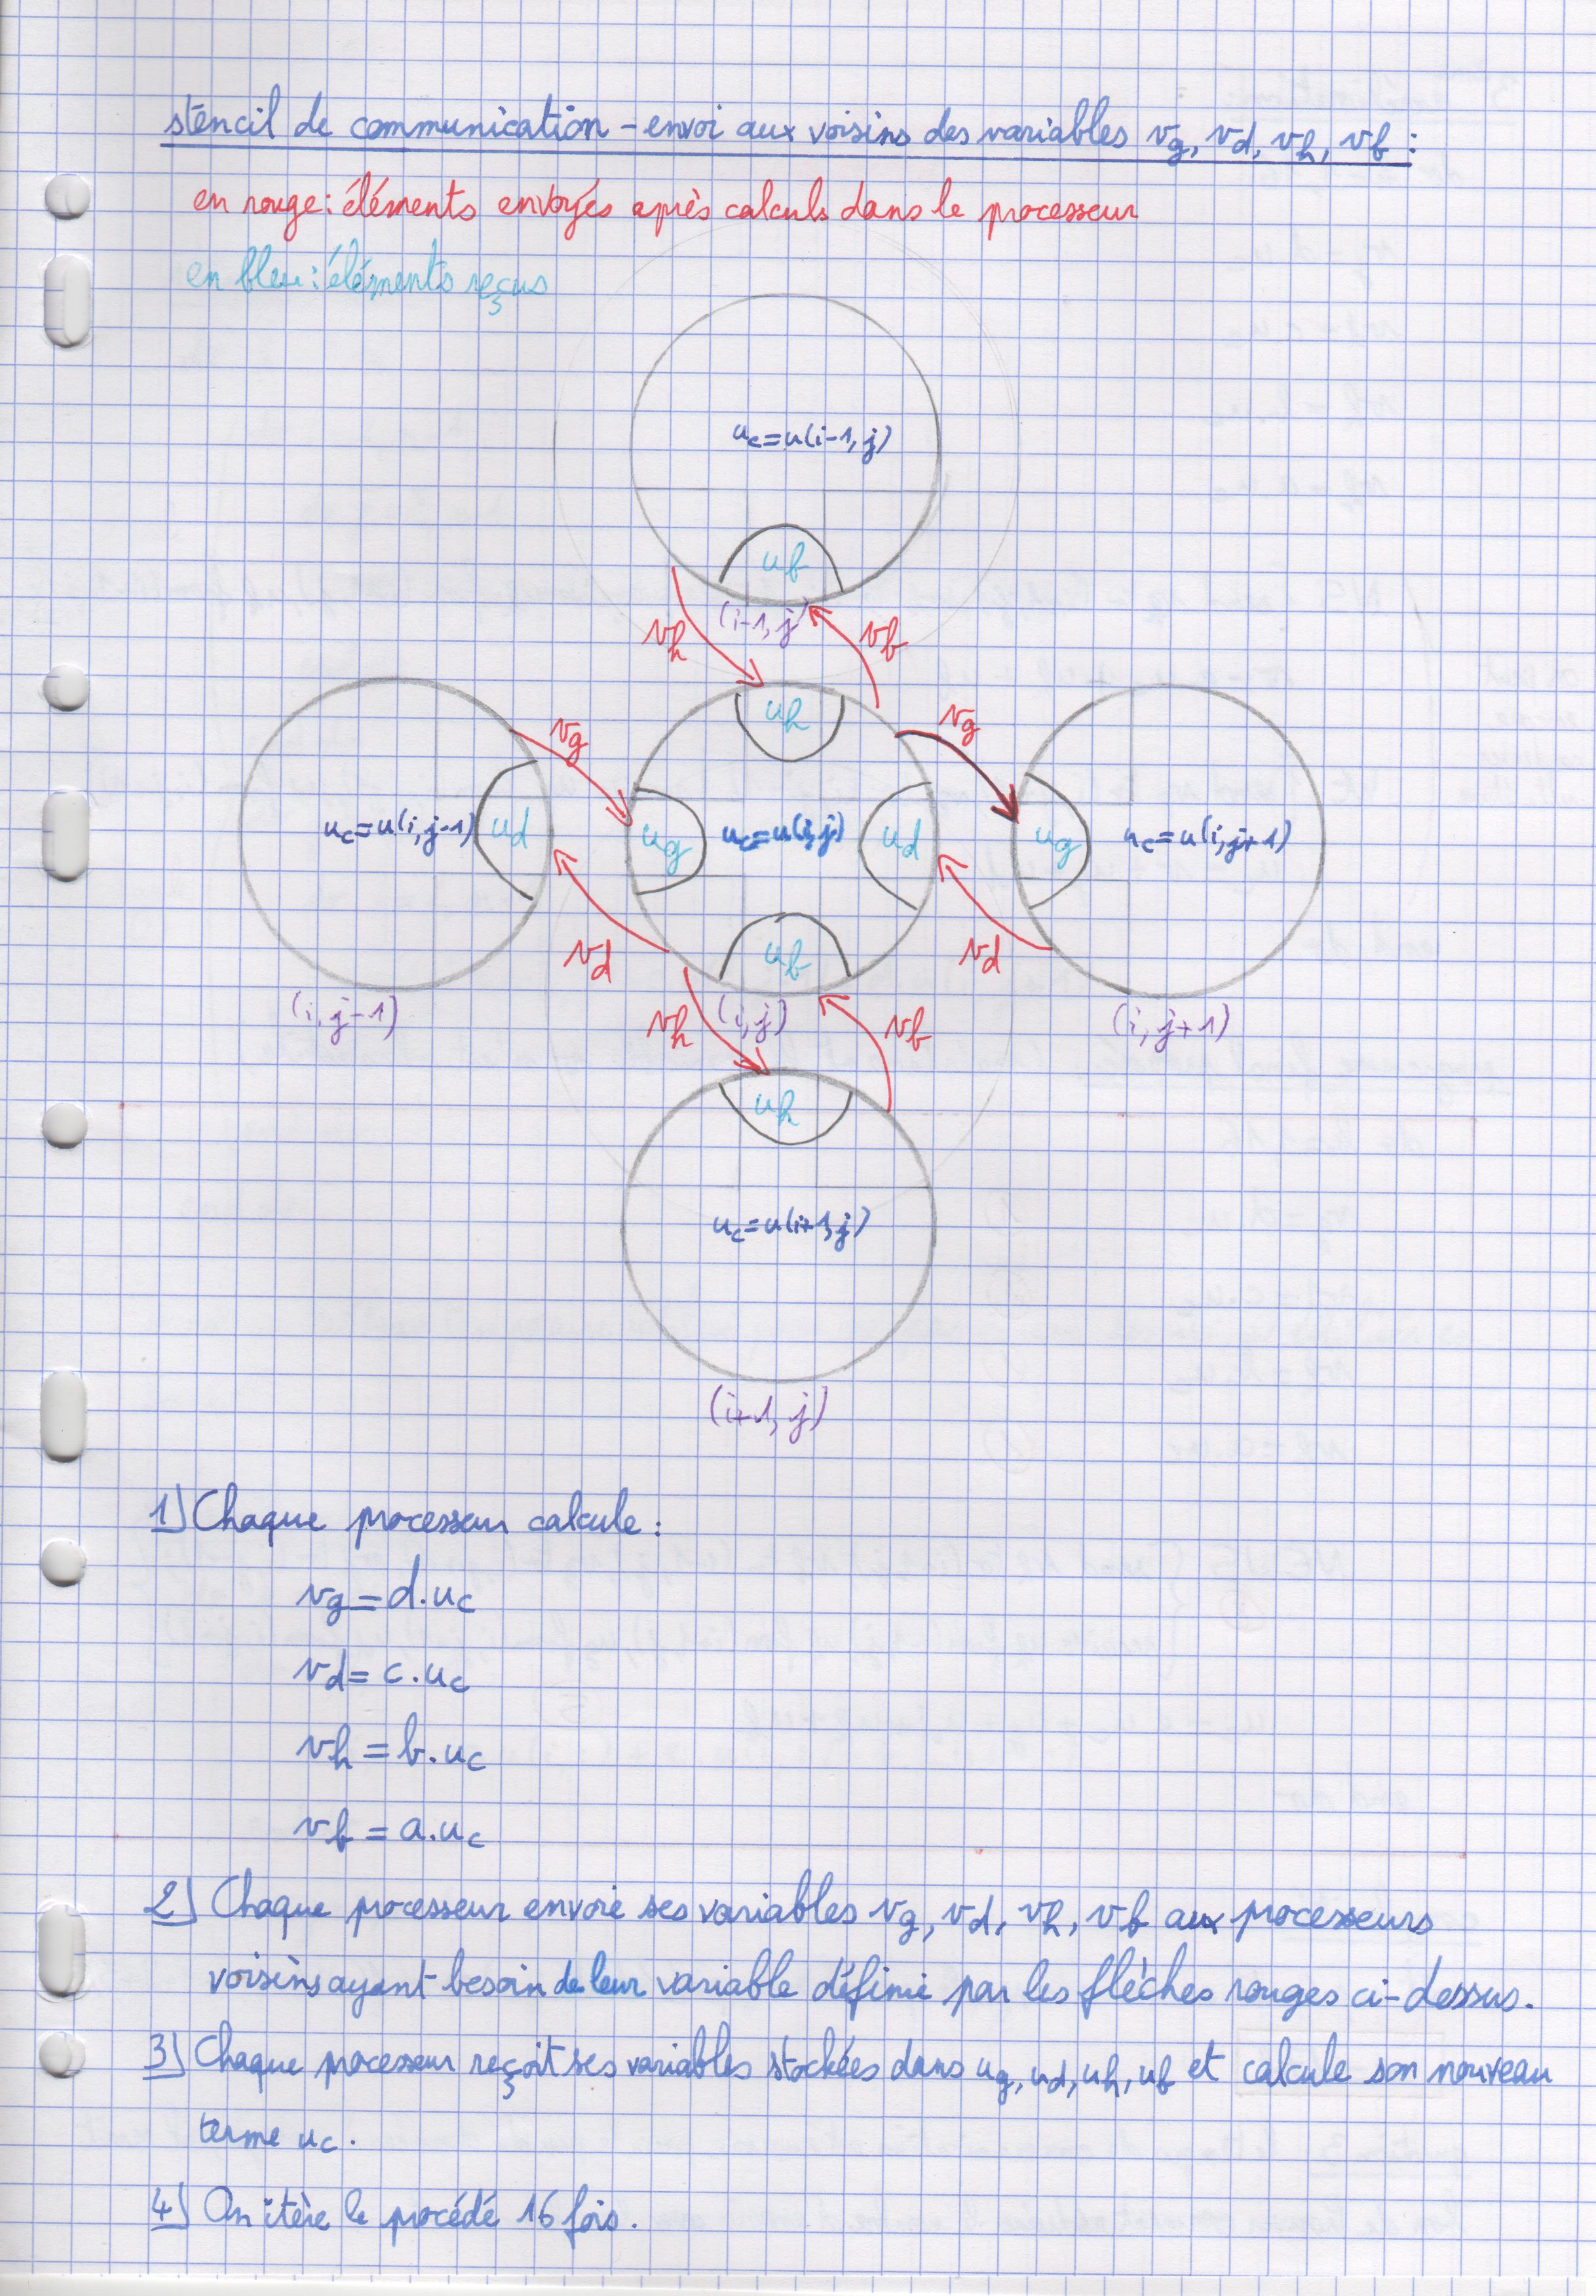 stencil de communication - envoi aux voisins des variables vg, vd, vh, vb :
en rouge : éléments envoyés après calculs dans le processeur
en bleu : éléments reçus
uc = u(i-1, j)
ub
(i-1, j)
vh
vb
uh
vg
vg
uc = u(i, j-1)
ud
ug
uc = u(i, j)
ud
ug
uc = u(i, j+1)
vd
ub
vd
(i, j-1)
vh
(i, j)
vb
(i, j+1)
uh
uc = u(i+1, j)
(i+1, j)
1) Chaque processeur calcule :
vg = d.uc
vd = c.uc
vh = b.uc
vb = a.uc
2) Chaque processeur envoie ses variables vg, vd, vh, vb aux processeurs
voisins ayant besoin de leur variable définie par les flèches rouges ci-dessus.
3) Chaque processeur reçoit ses variables stockées dans ug, ud, uh, ub et calcule son nouveau
terme uc.
4) On itère le procédé 16 fois.